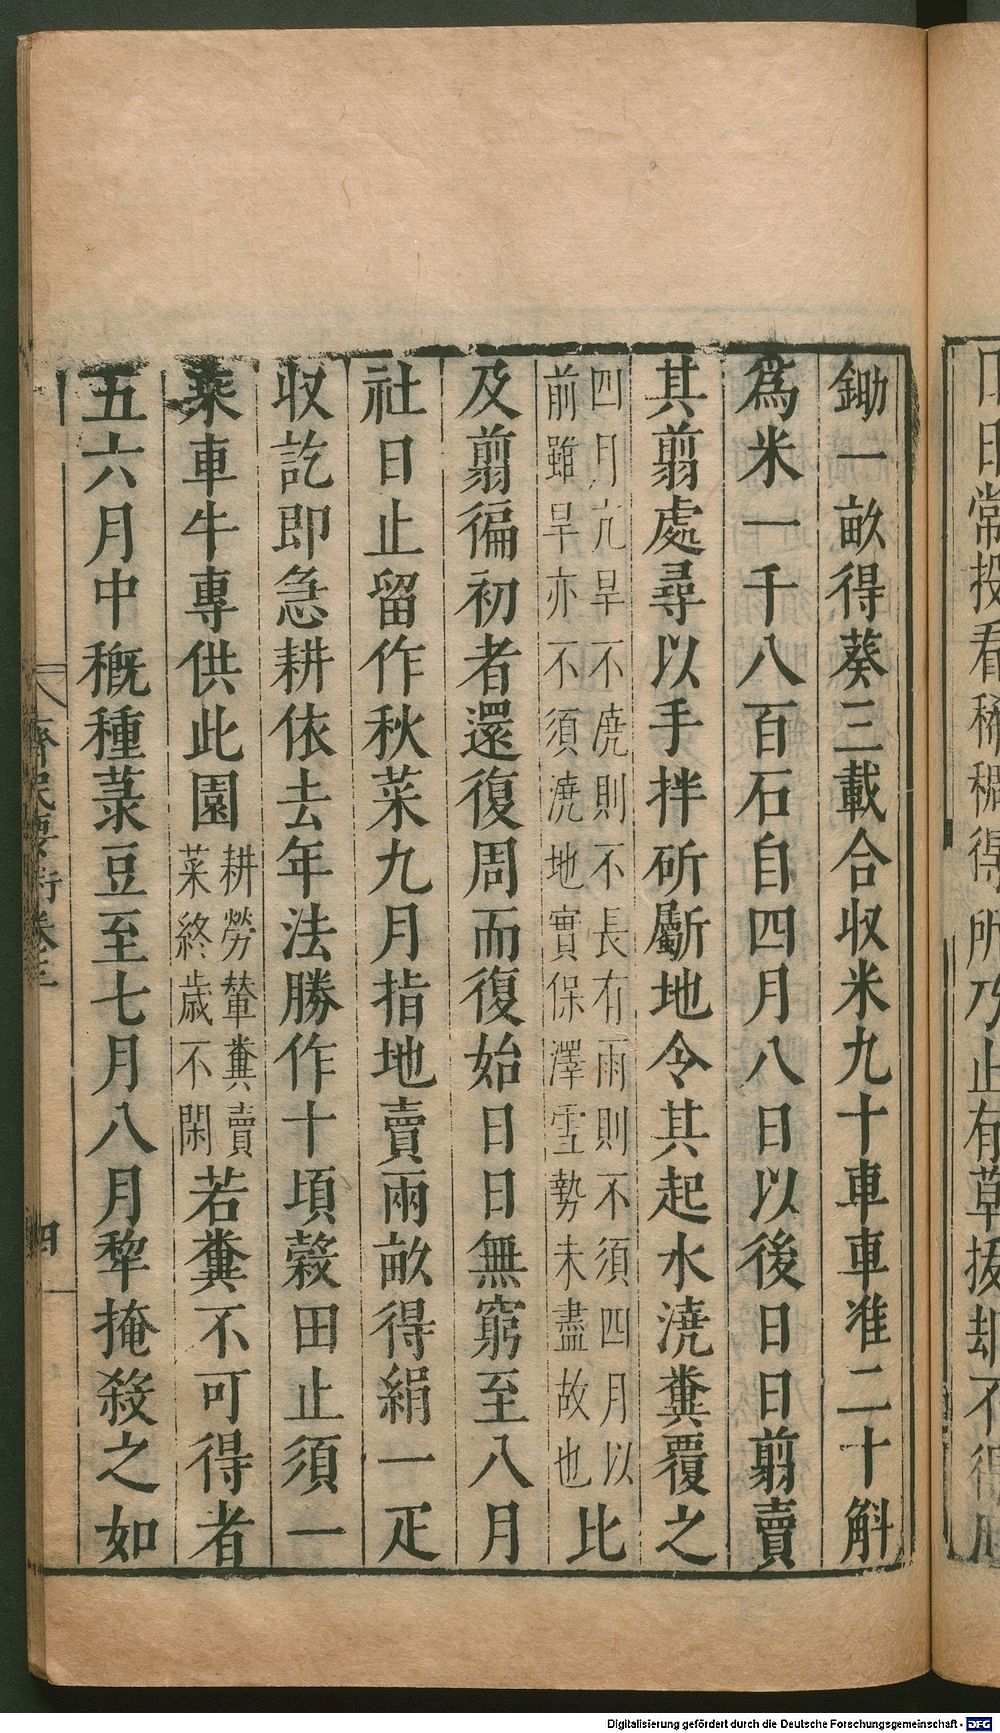 常投看稀稠得所乃止有草拔却不得
鋤一畝得葵三載合収米九十車車准二十斛
爲米一千八百石自四月八日以後日日剪賣
其剪處尋以手拌斫斸地令其起水澆糞覆之
四月亢旱不澆則不長有雨則不須四月以
前雖旱亦不須澆地實保澤雪勢未盡故也
比
及剪徧初者還復周而復始日日無窮至八月
社日止留作秋菜九月指地賣兩畝得絹一疋
収訖即急耕依去年法勝作十頃穀田止須一
乘車牛專供此園
耕勞輂糞賣
菜終歲不閑
若糞不可得者
五六月中穊種菉豆至七月八月犂掩殺之如
齊民要術卷三
四
Digitalisierung gefördert durch die Deutsche Forschungsgemeinschaft - DFG